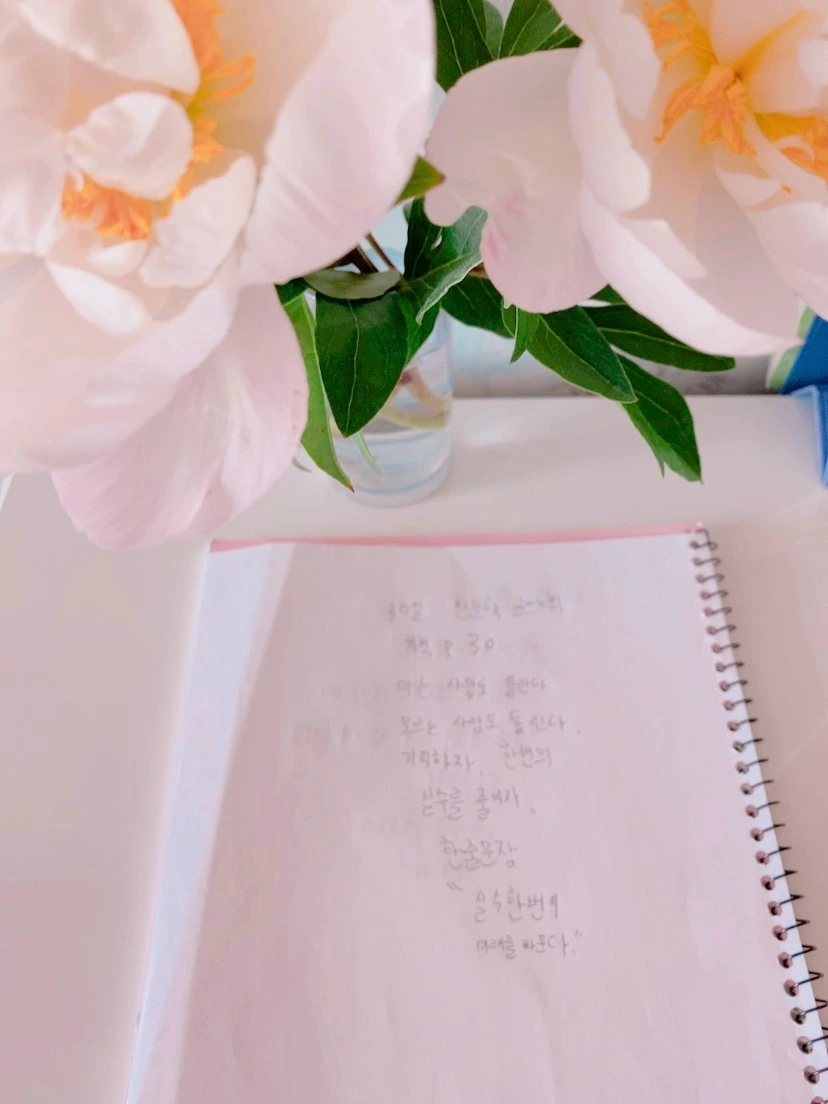 30일 인문학 글쓰기
30
아는 사람도 틀린다
모르는 사람도 틀린다.
기억하자. 한번의
실수를 줄이자.
한줄문장
"실수한번이
미래를 바꾼다."